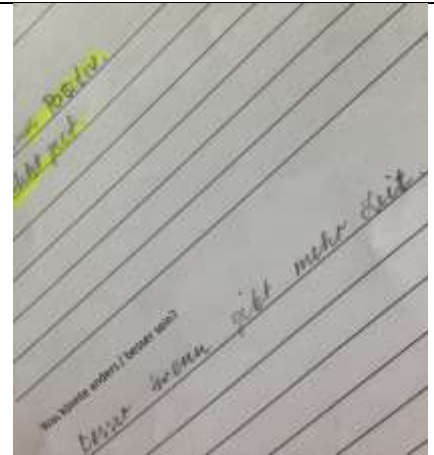 Positiv.
sehr gut.
Was könnte anders / besser sein?
besser wenn gibt mehr Zeit.